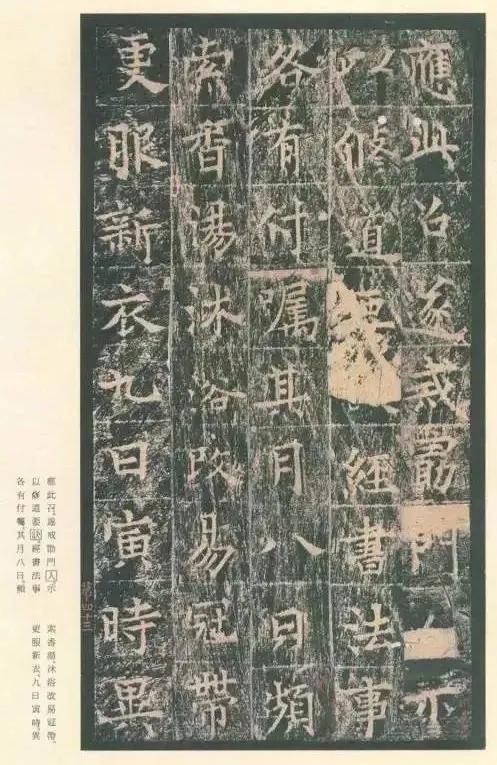 應此召遂戒勗門人示
以修道要訣經書法事
各有付囑其月八日頻
索香湯沐浴改易冠帶
更服新衣九日寅時異
第四十三
應此召,遂戒勗門人示
以修道要訣,經書法事
各有付囑,其月八日,頻
索香湯,沐浴改易冠帶,
更服新衣,九日寅時,異